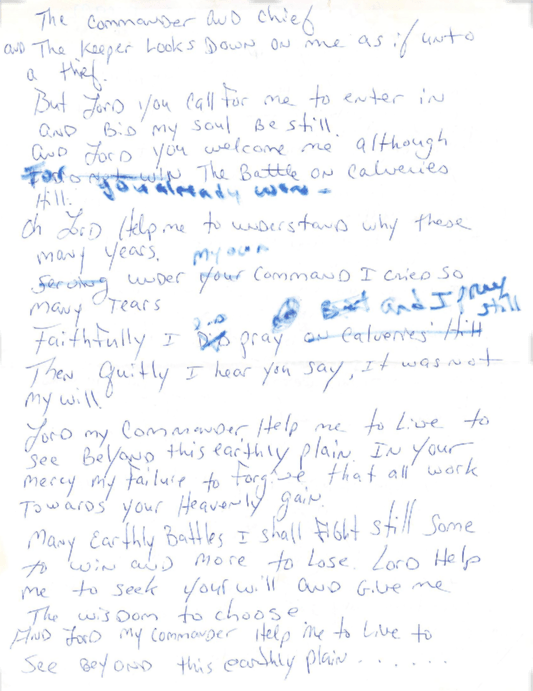 The Commander and Chief
and The Keeper Looks Down on me as if unto
a thief.
But Lord you call for me to enter in
and Bid my soul Be still.
and Lord you welcome me although
I do not win The Battle on Calveries
you already won -
Hill.
Oh Lord Help me to understand why these
many years.
my own
Serving under your Command I cried so
many Tears
and I pray
still
did
Faithfully I pray on Calveries Hill
Then Quitly I hear you say, It was not
My will.
Lord my Commander Help me to Live to
see Beyand this earthly plain. In your
mercy my failure to forgive that all work
Towards your Heavenly gain.
Many Earthly Battles I shall Fight still Some
to win and more to Lose. Lord Help
me to seek your will and Give me
The wisdom to choose
And Lord my Commander Help me to Live to
See Beyand this earthly plain.......